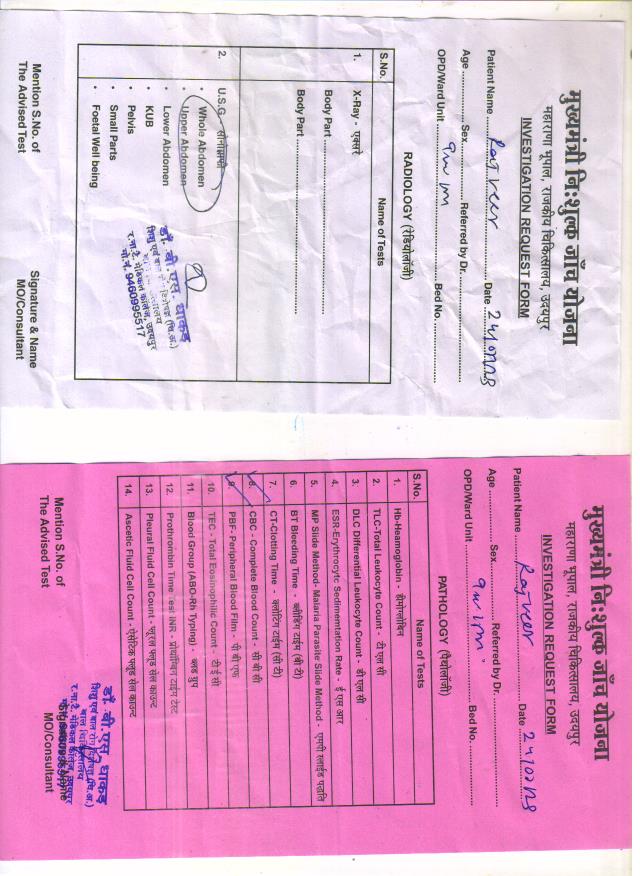 मुख्यमंत्री निःशुल्क जाँच योजना
महाराणा भूपाल, राजकीय चिकित्सालय, उदयपुर
INVESTIGATION REQUEST FORM
Patient Name Rajveer Date
Age Sex Referred by Dr.
OPD/Ward Unit Bed No.
RADIOLOGY (रेडियोलॉजी)
S.No. Name of Tests
1. X-Ray - एक्सरे
Body Part
Body Part
2. U.S.G - सोनोग्राफी
• Whole Abdomen
• Upper Abdomen
• Lower Abdomen
• KUB
• Pelvis
• Small Parts
• Foetal Well being
डॉ. बी.एस. धाकड़
र.ना.टै. मेडिकल कॉलेज, उदयपुर
मो.नं. 9460995517
Mention S.No. of Signature & Name
The Advised Test MO/Consultant
मुख्यमंत्री निःशुल्क जाँच योजना
महाराणा भूपाल, राजकीय चिकित्सालय, उदयपुर
INVESTIGATION REQUEST FORM
Patient Name Rajveer Date
Age Sex Referred by Dr.
OPD/Ward Unit Bed No.
PATHOLOGY (पैथोलॉजी)
S.No. Name of Tests
1. Hb-Heamoglobin - हीमोग्लोबिन
2. TLC-Total Leukocyte Count - टी एल सी
3. DLC Differential Leukocyte Count - डी एल सी
4. ESR-Erythrocytc Sedimentation Rate - ई एस आर
5. MP Slide Method- Malaria Parasite Slide Method - एमपी स्लाईड पद्धति
6. BT Bleeding Time - ब्लीडिंग टाईम (बी टी)
7. CT-Clotting Time - क्लोटिंग टाईम (सी टी)
8. CBC - Complete Blood Count - सी बी सी
9. PBF- Peripheral Blood Film - पी बी एफ
10. TEC - Total Eosinophilic Count - टी ई सी
11. Blood Group (ABO-Rh Typing) - ब्लड ग्रुप
12. Prothrombin Time Test INR - प्रोथ्रोम्बिन टाईम टेस्ट
13. Pleural Fluid Cell Count - प्लुरल फ्लुड सेल काउन्ट
14. Ascetic Fluid Cell Count - ऐसेटिक फ्लुड सेल काउन्ट
डॉ. बी.एस. धाकड़
र.ना.टै. मेडिकल कॉलेज, उदयपुर
Mention S.No. of
The Advised Test MO/Consultant